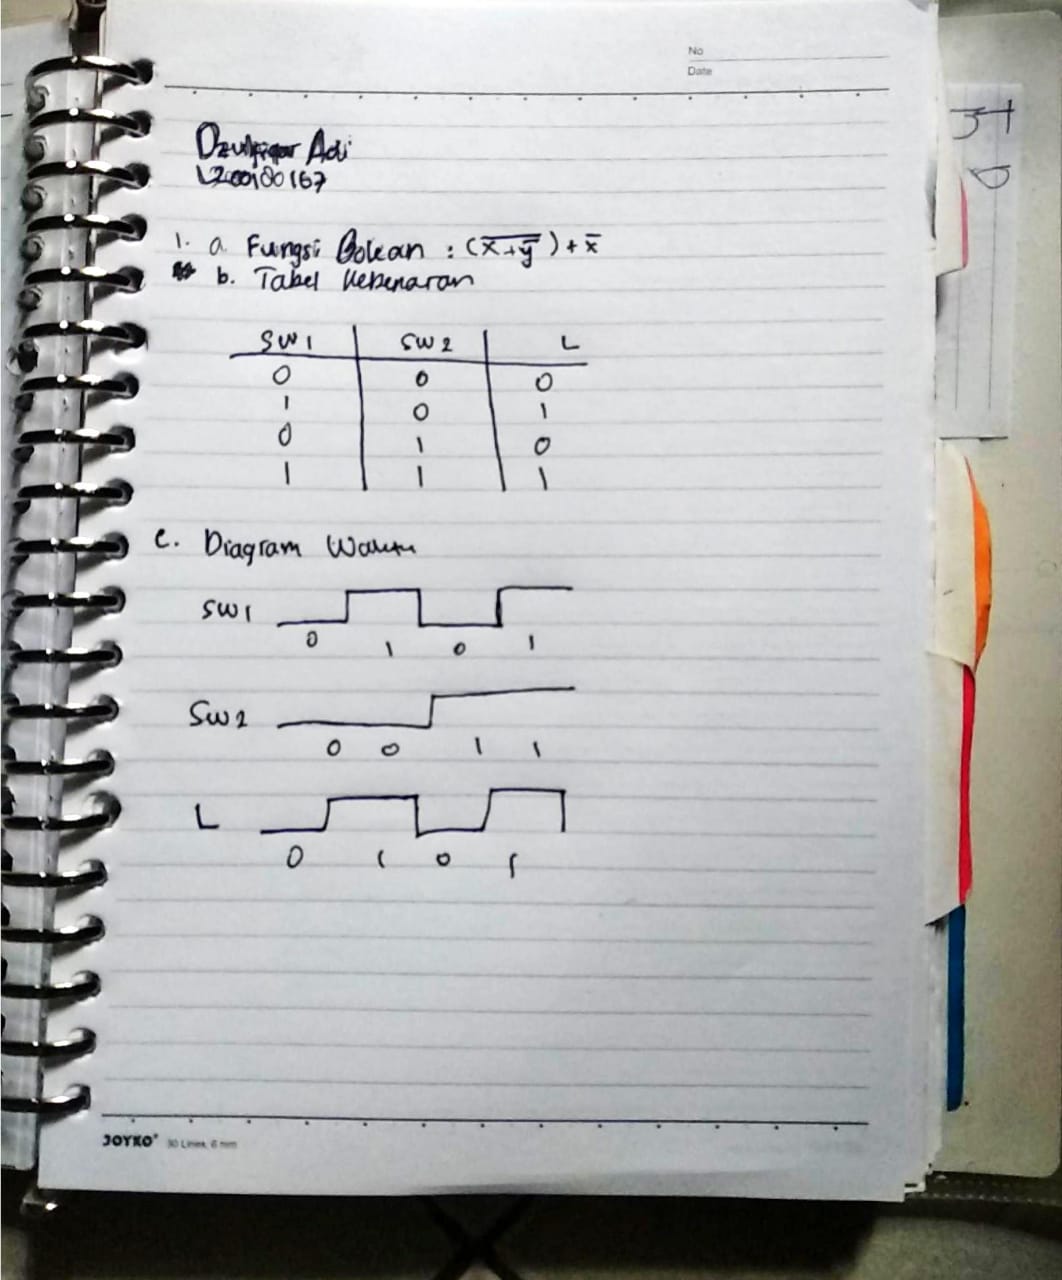 No
Date
Dzulfiqar Adi
L200180167
1. a. Fungsi Bolean : (\overline{x+\overline{y}}) + \overline{x}
b. Tabel kebenaran
SW1 SW2 L
0 0 0
1 0 1
0 1 0
1 1 1
c. Diagram Waktu
SW1
0 1 0 1
SW2
0 0 1 1
L
0 1 0 1
JOYKO 30 Lines, 6 mm